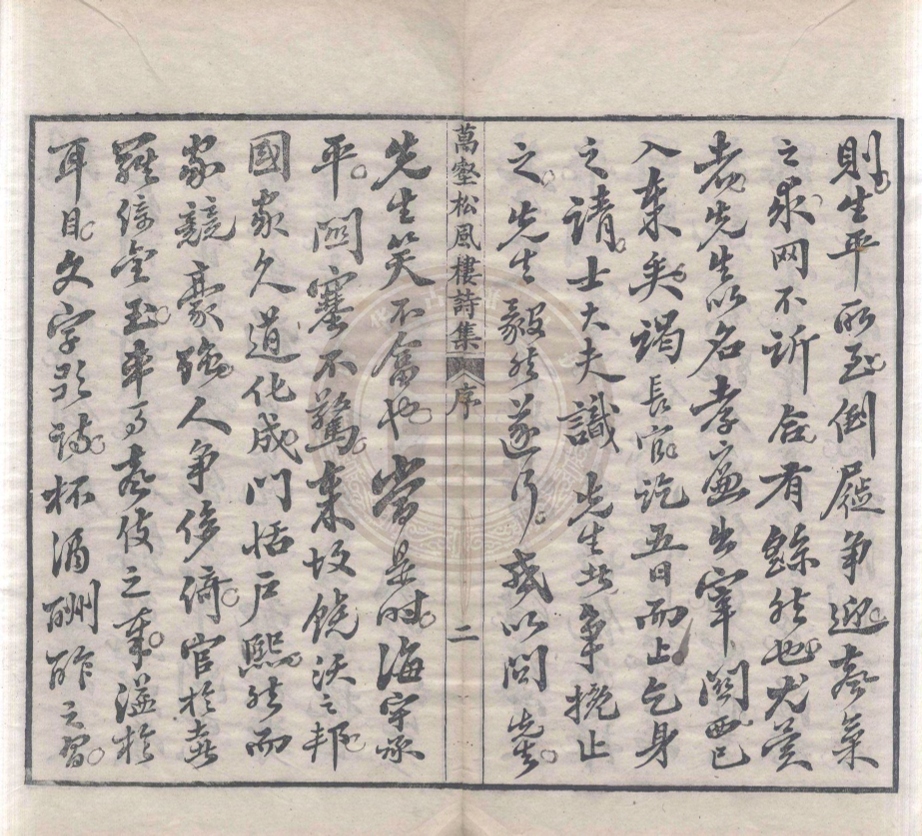 則。生平所至倒屣爭迎。聲氣
之求。罔不訢合有餘。然也。尤異
者。先生以名孝廉出宰關西。已
入秦矣。謁長官訖五日而上乞身
之請。士大夫識先生皆爭挽止
之。先生毅然遂行。或以問先生。
萬壑松風樓詩集 序 二
先生笑不答也。當是時。海宇承
平。關塞不驚。秦故饒沃之邦。
國家久道化成。門恬戶熙。然而
家競豪強。人爭侈綺。官於
羅綺金玉。車馬聲伎之奉。溢於
耳目。文字杯酒酬酢之習。